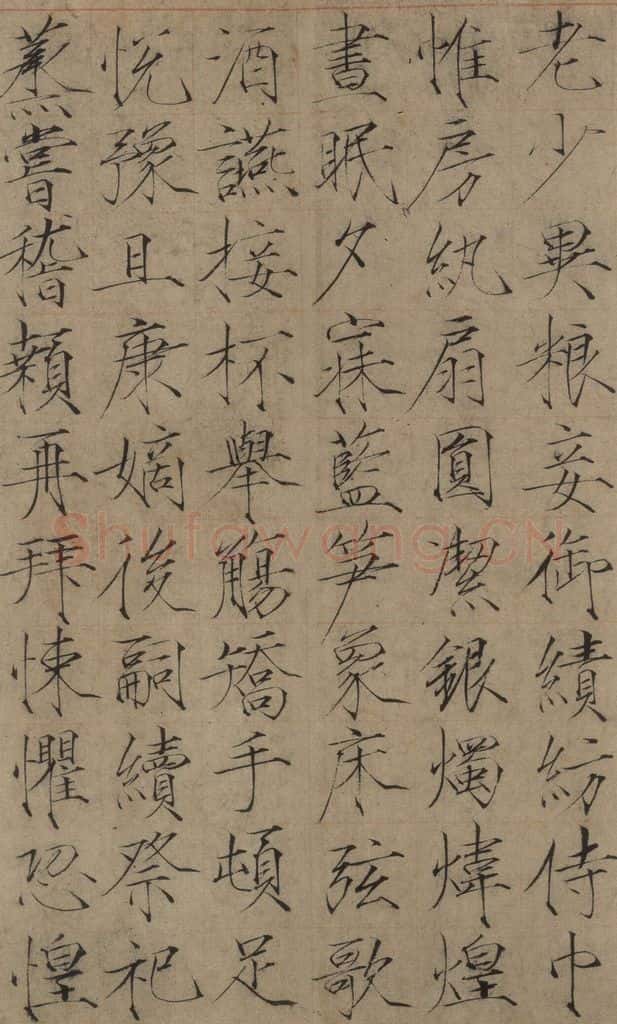 老少異粮妾御績紡侍巾
帷房紈扇圓潔銀燭煒煌
晝眠夕寐藍笋象床弦歌
酒讌接杯舉觴矯手頓足
悅豫且康嫡後嗣續祭祀
蒸嘗稽顙再拜悚懼恐惶
Shufawang.CN